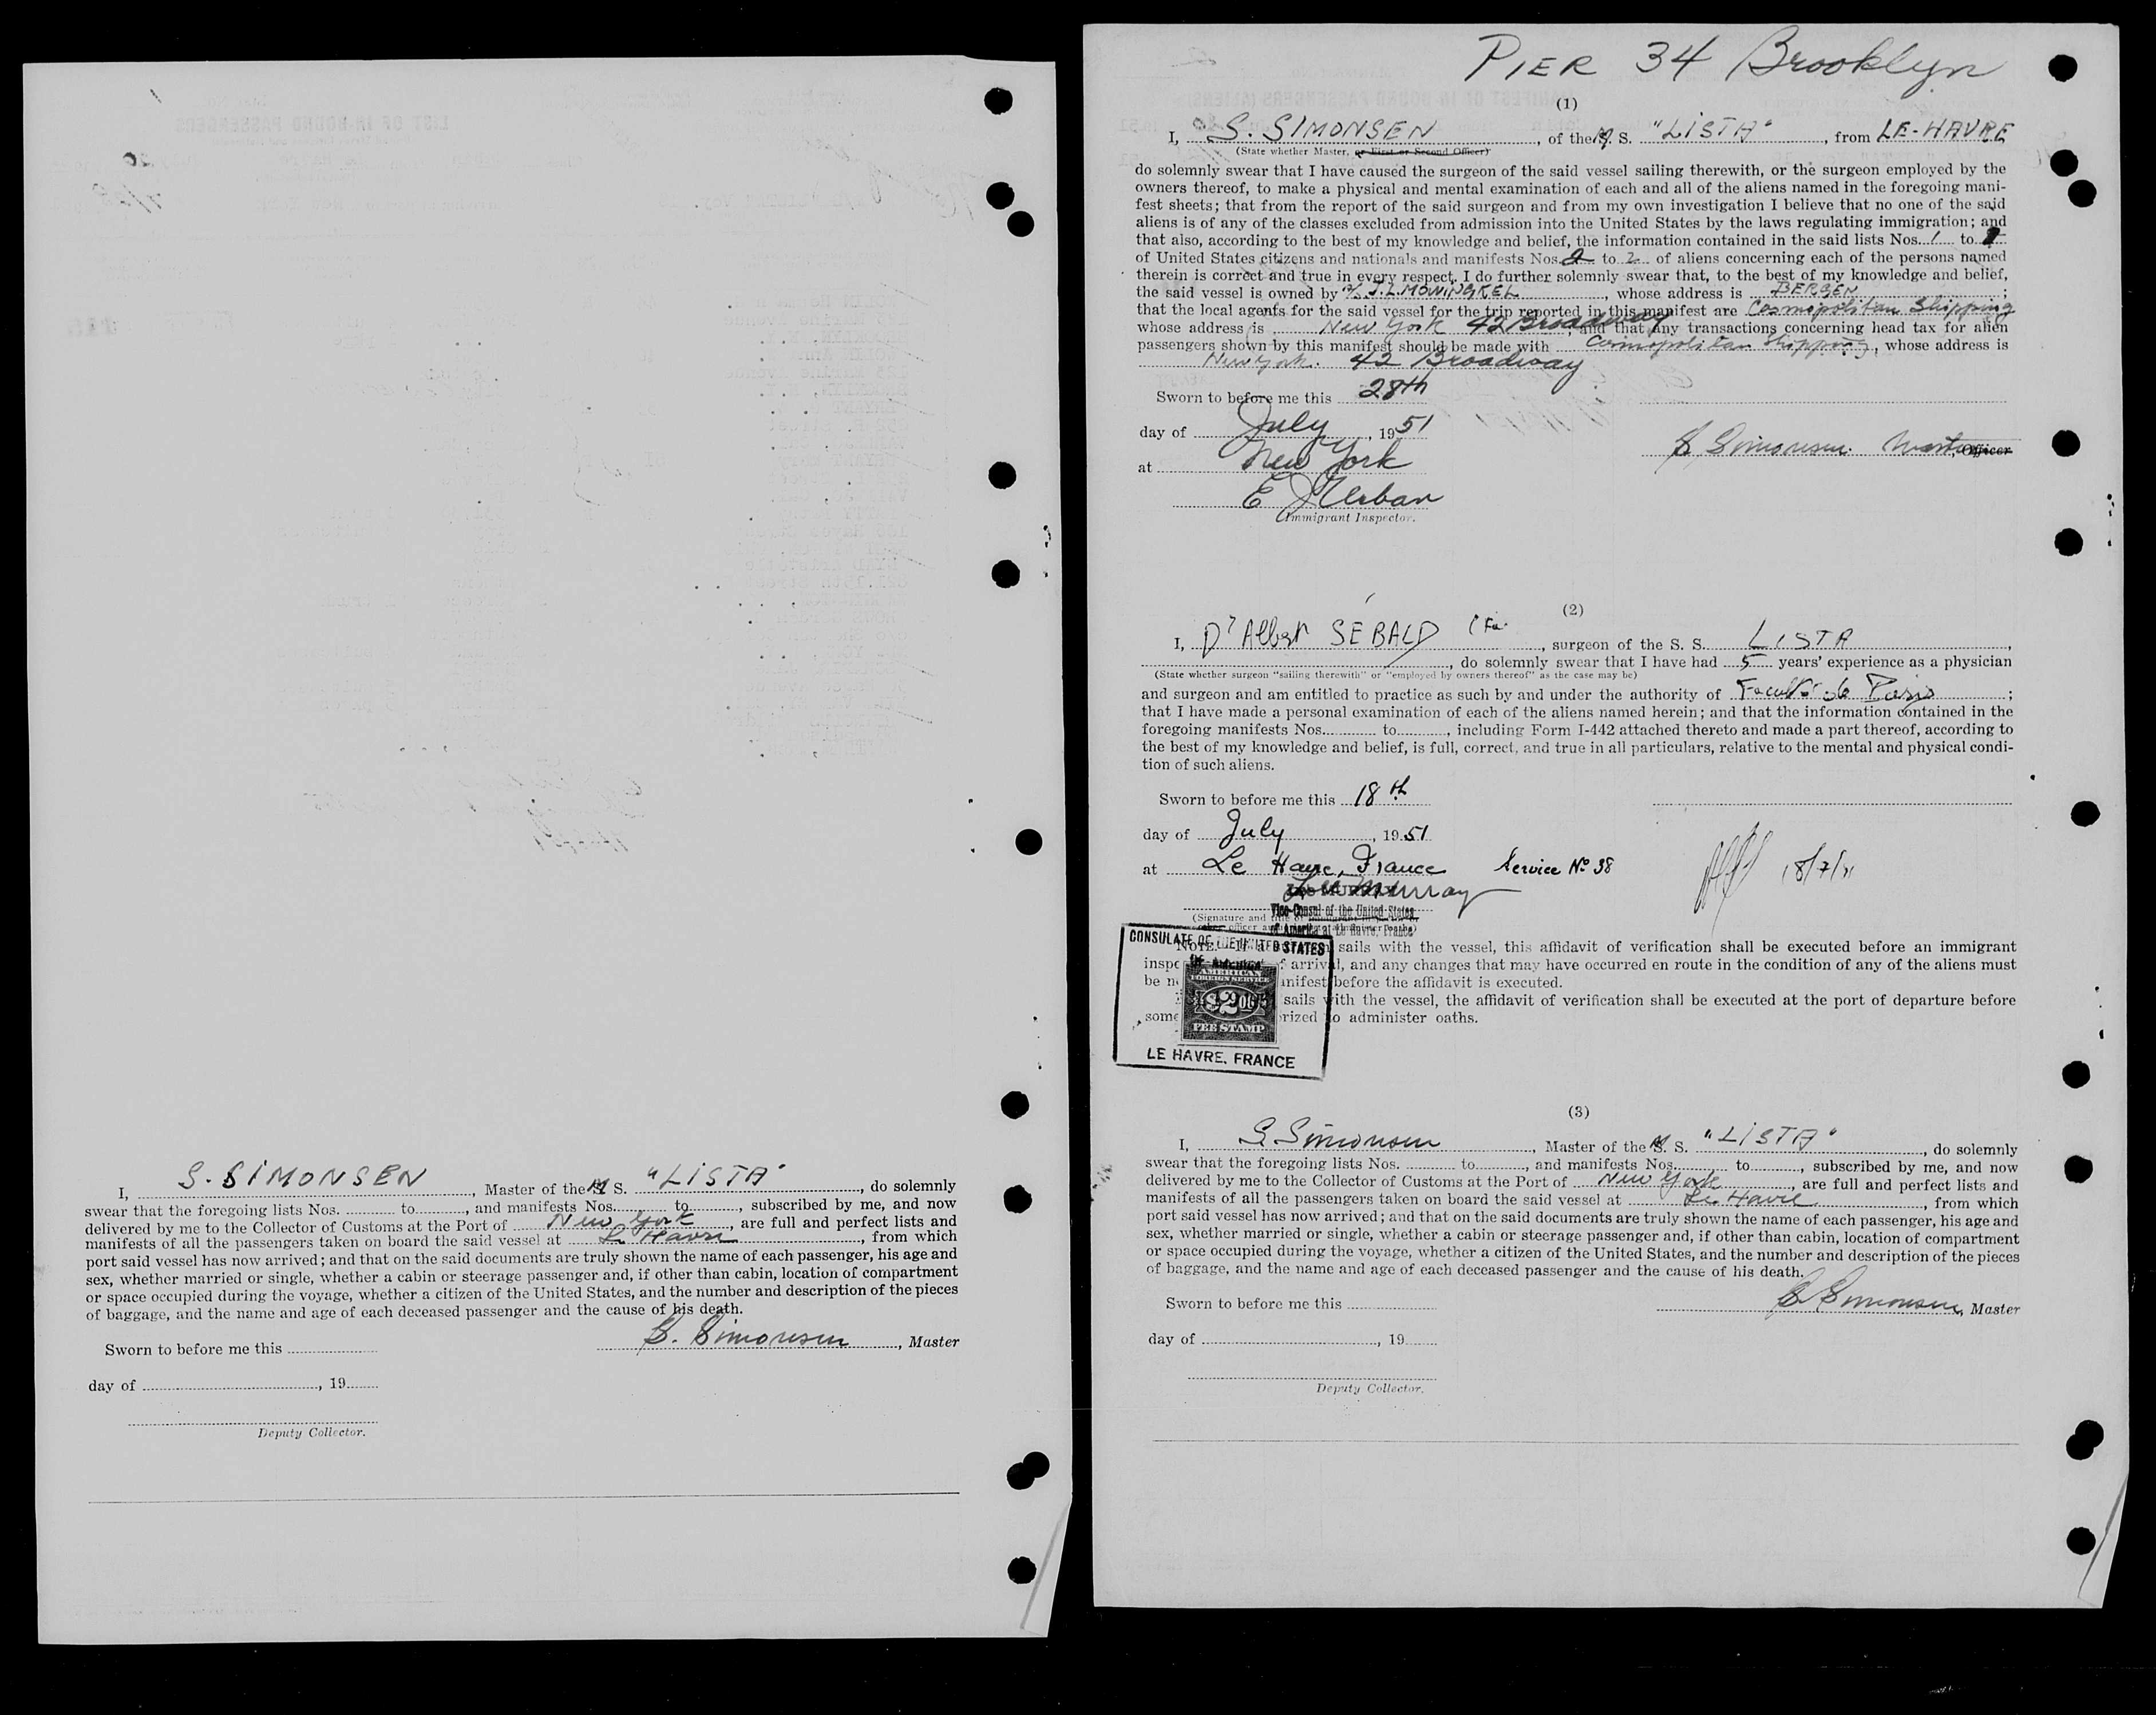 I, S. SIMONSEN, Master of the M S. "LISTA", do solemnly
swear that the foregoing lists Nos. to, and manifests Nos. to, subscribed by me, and now
delivered by me to the Collector of Customs at the Port of New York, are full and perfect lists and
manifests of all the passengers taken on board the said vessel at Le Havre, from which
port said vessel has now arrived; and that on the said documents are truly shown the name of each passenger, his age and
sex, whether married or single, whether a cabin or steerage passenger and, if other than cabin, location of compartment
or space occupied during the voyage, whether a citizen of the United States, and the number and description of the pieces
of baggage, and the name and age of each deceased passenger and the cause of his death.
S. Simonsen, Master
Sworn to before me this
day of , 19
Deputy Collector.
PIER 34 Brooklyn
(1)
I, S. SIMONSEN, of the M. S. "LISTA", from LE-HAVRE
(State whether Master, or First or Second Officer)
do solemnly swear that I have caused the surgeon of the said vessel sailing therewith, or the surgeon employed by the
owners thereof, to make a physical and mental examination of each and all of the aliens named in the foregoing mani-
fest sheets; that from the report of the said surgeon and from my own investigation I believe that no one of the said
aliens is of any of the classes excluded from admission into the United States by the laws regulating immigration; and
that also, according to the best of my knowledge and belief, the information contained in the said lists Nos. 1 to
of United States citizens and nationals and manifests Nos. 2 to 2 of aliens concerning each of the persons named
therein is correct and true in every respect. I do further solemnly swear that, to the best of my knowledge and belief,
the said vessel is owned by A/S J.L. MOWINCKEL, whose address is BERGEN;
that the local agents for the said vessel for the trip reported in this manifest are Cosmopolitan Shipping
whose address is New York 42 Broadway; and that any transactions concerning head tax for alien
passengers shown by this manifest should be made with Cosmopolitan Shipping, whose address is
New York. 42 Broadway
Sworn to before me this 28th
day of July, 1951
S. Simonsen. Master, Officer
at New York
E J Urban
Immigrant Inspector.
(2)
I, Dr Albert SEBALD, surgeon of the S. S. LISTA,
, do solemnly swear that I have had 5 years' experience as a physician
(State whether surgeon "sailing therewith" or "employed by owners thereof" as the case may be)
and surgeon and am entitled to practice as such by and under the authority of Faculté de Paris;
that I have made a personal examination of each of the aliens named herein; and that the information contained in the
foregoing manifests Nos. to, including Form I-442 attached thereto and made a part thereof, according to
the best of my knowledge and belief, is full, correct, and true in all particulars, relative to the mental and physical condi-
tion of such aliens.
Sworn to before me this 18th
day of July, 1951
at Le Havre, France Service No 38
18/7/51
Murray
Vice-Consul of the United States
of America at Le Havre, France
(Signature and title of
CONSULATE OF THE UNITED STATES
OF AMERICA
AMERICAN
FOREIGN SERVICE
$2
FEE STAMP
LE HAVRE, FRANCE
NOTE. sails with the vessel, this affidavit of verification shall be executed before an immigrant
arrival, and any changes that may have occurred en route in the condition of any of the aliens must
be manifest before the affidavit is executed.
sails with the vessel, the affidavit of verification shall be executed at the port of departure before
some to administer oaths.
(3)
I, S. Simonsen, Master of the M. S. "LISTA", do solemnly
swear that the foregoing lists Nos. to, and manifests Nos. to, subscribed by me, and now
delivered by me to the Collector of Customs at the Port of New York, are full and perfect lists and
manifests of all the passengers taken on board the said vessel at Le Havre, from which
port said vessel has now arrived; and that on the said documents are truly shown the name of each passenger, his age and
sex, whether married or single, whether a cabin or steerage passenger and, if other than cabin, location of compartment
or space occupied during the voyage, whether a citizen of the United States, and the number and description of the pieces
of baggage, and the name and age of each deceased passenger and the cause of his death.
Sworn to before me this
S Simonsen, Master
day of , 19
Deputy Collector.